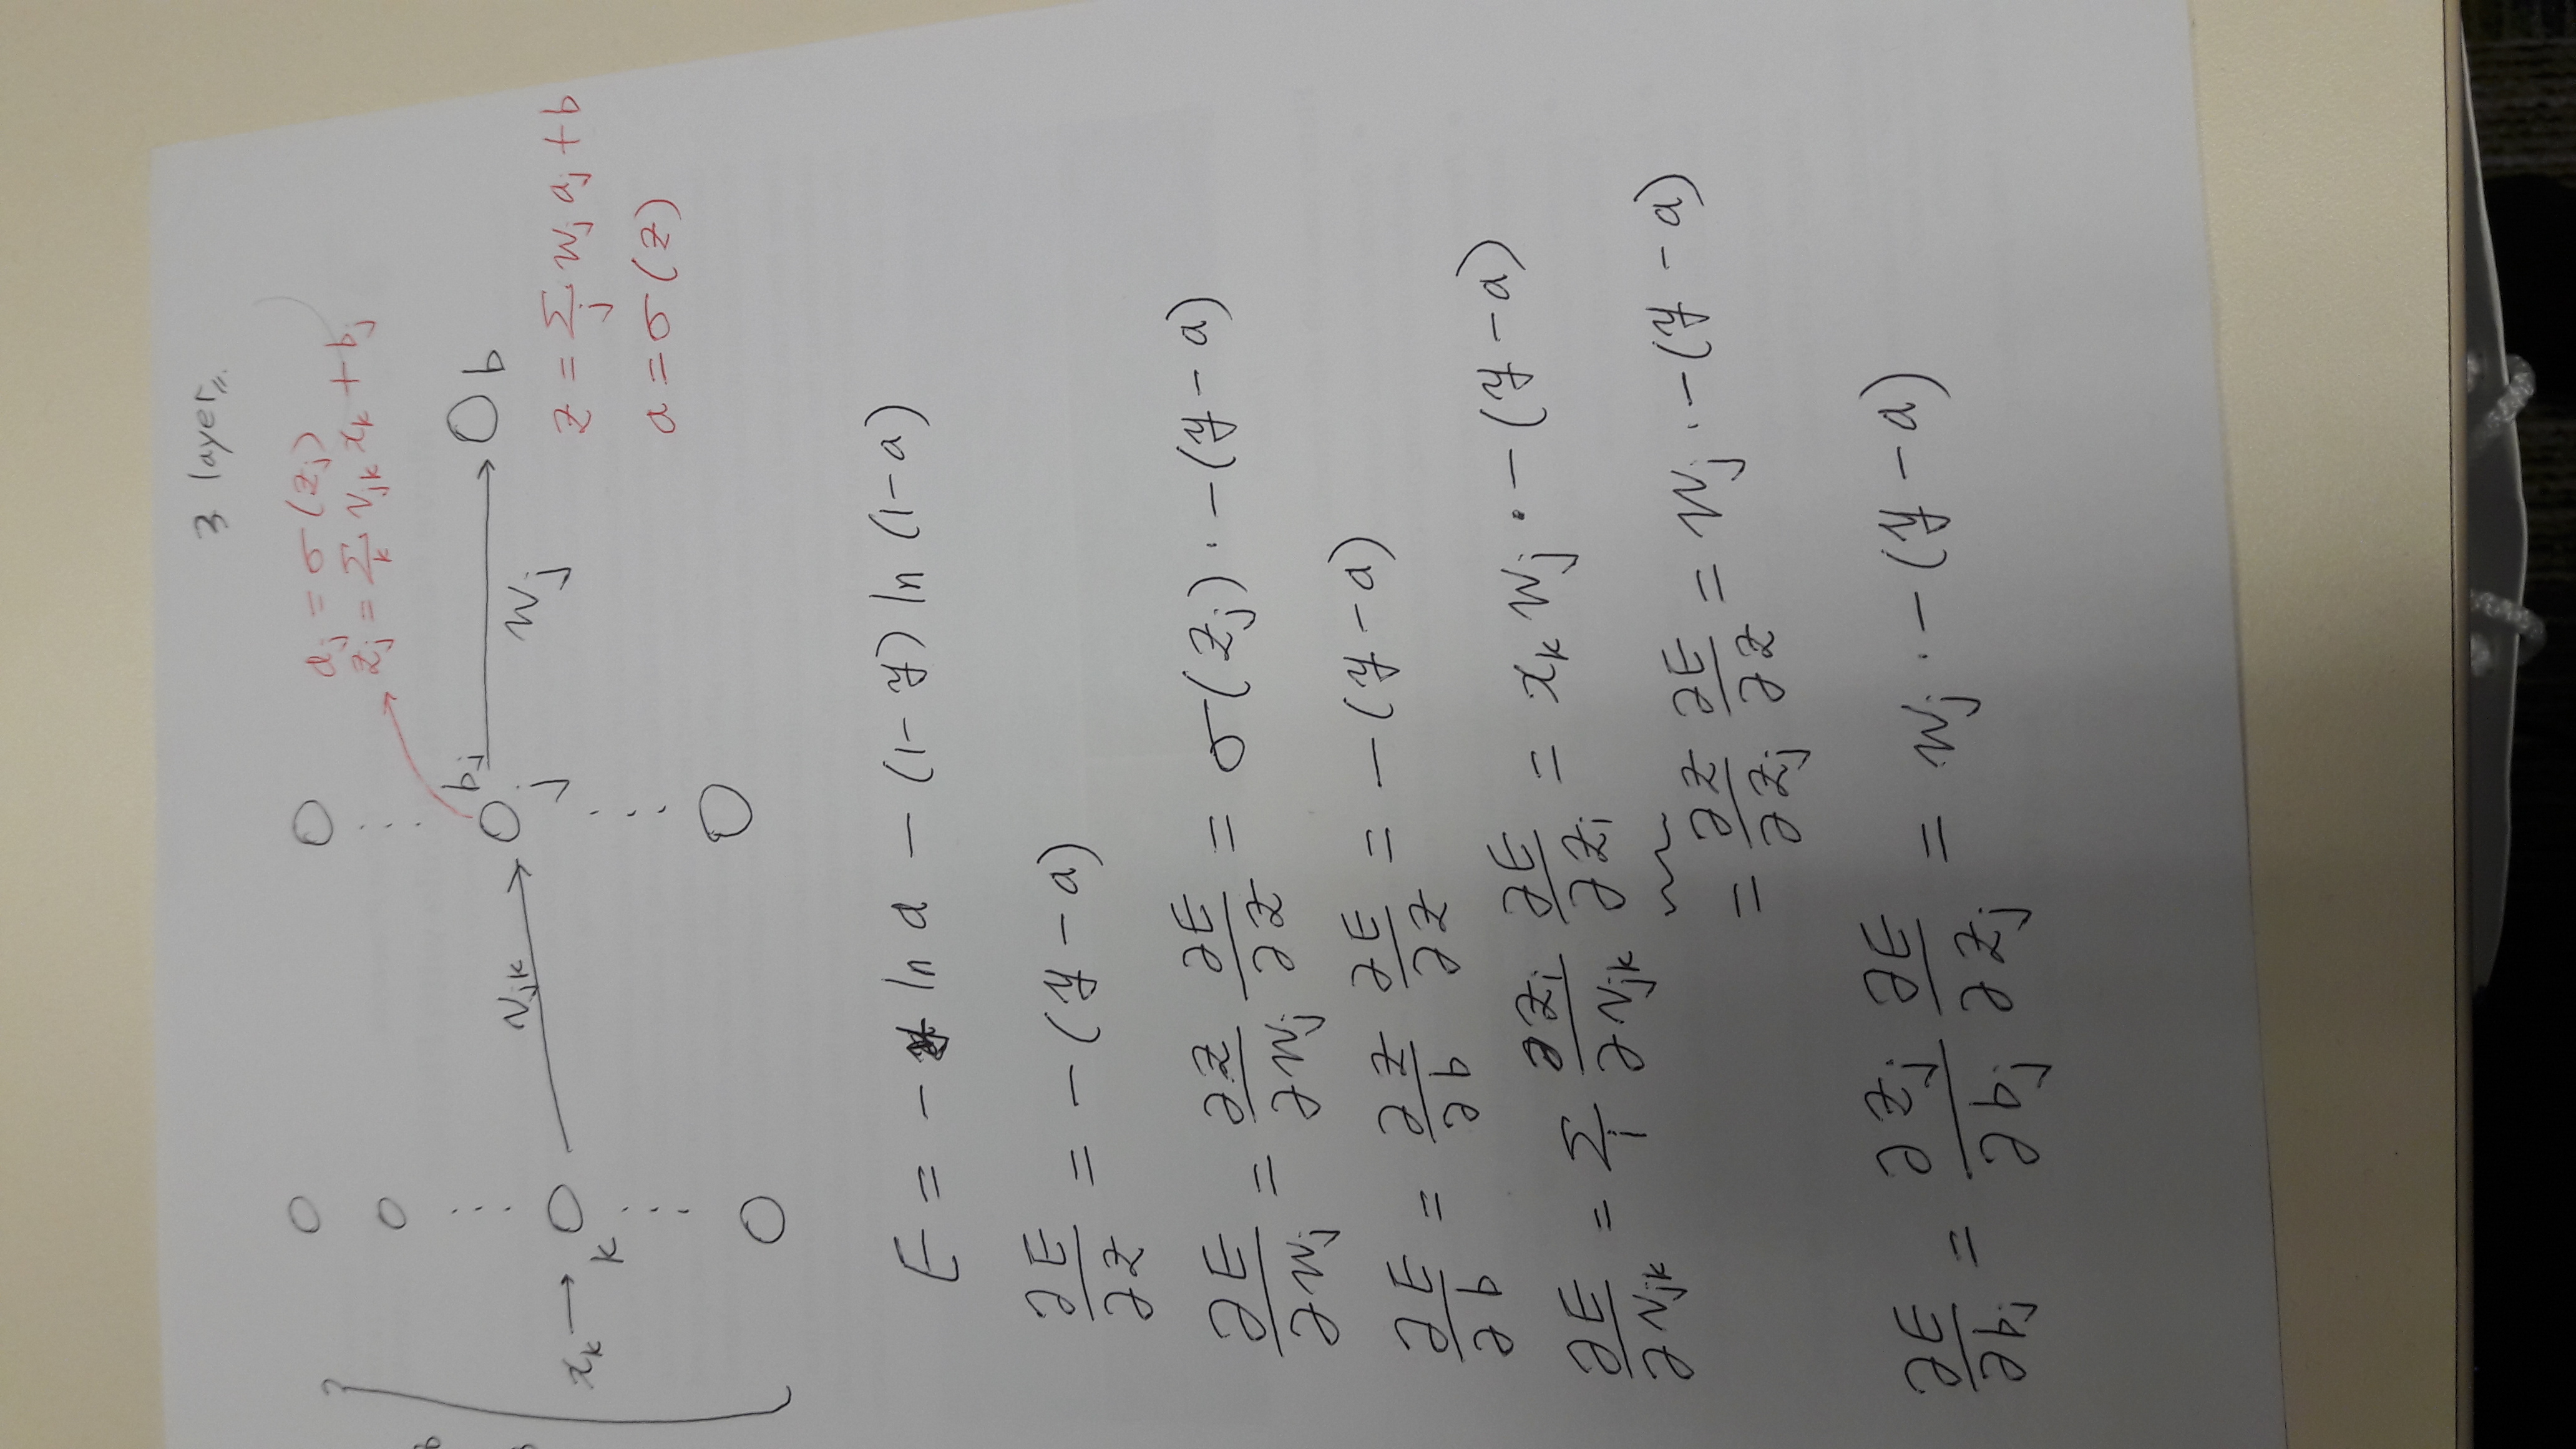 3 layer
a_j = σ(z_j)
z_j = Σ_k v_jk x_k + b_j
b_j
v_jk
j
w_j
b
x_k →
k
z = Σ_j w_j a_j + b
a = σ(z)
E = - y ln a - (1-y) ln (1-a)
∂E/∂z = -(y-a)
∂E/∂w_j = ∂z/∂w_j ∂E/∂z = σ(z_j) · -(y-a)
∂E/∂b = ∂z/∂b ∂E/∂z = -(y-a)
∂E/∂v_jk = Σ_i ∂z_i/∂v_jk ∂E/∂z_i = x_k w_j · -(y-a)
= ∂z/∂z_j ∂E/∂z = w_j · -(y-a)
∂E/∂b_j = ∂z_j/∂b_j ∂E/∂z_j = w_j · -(y-a)